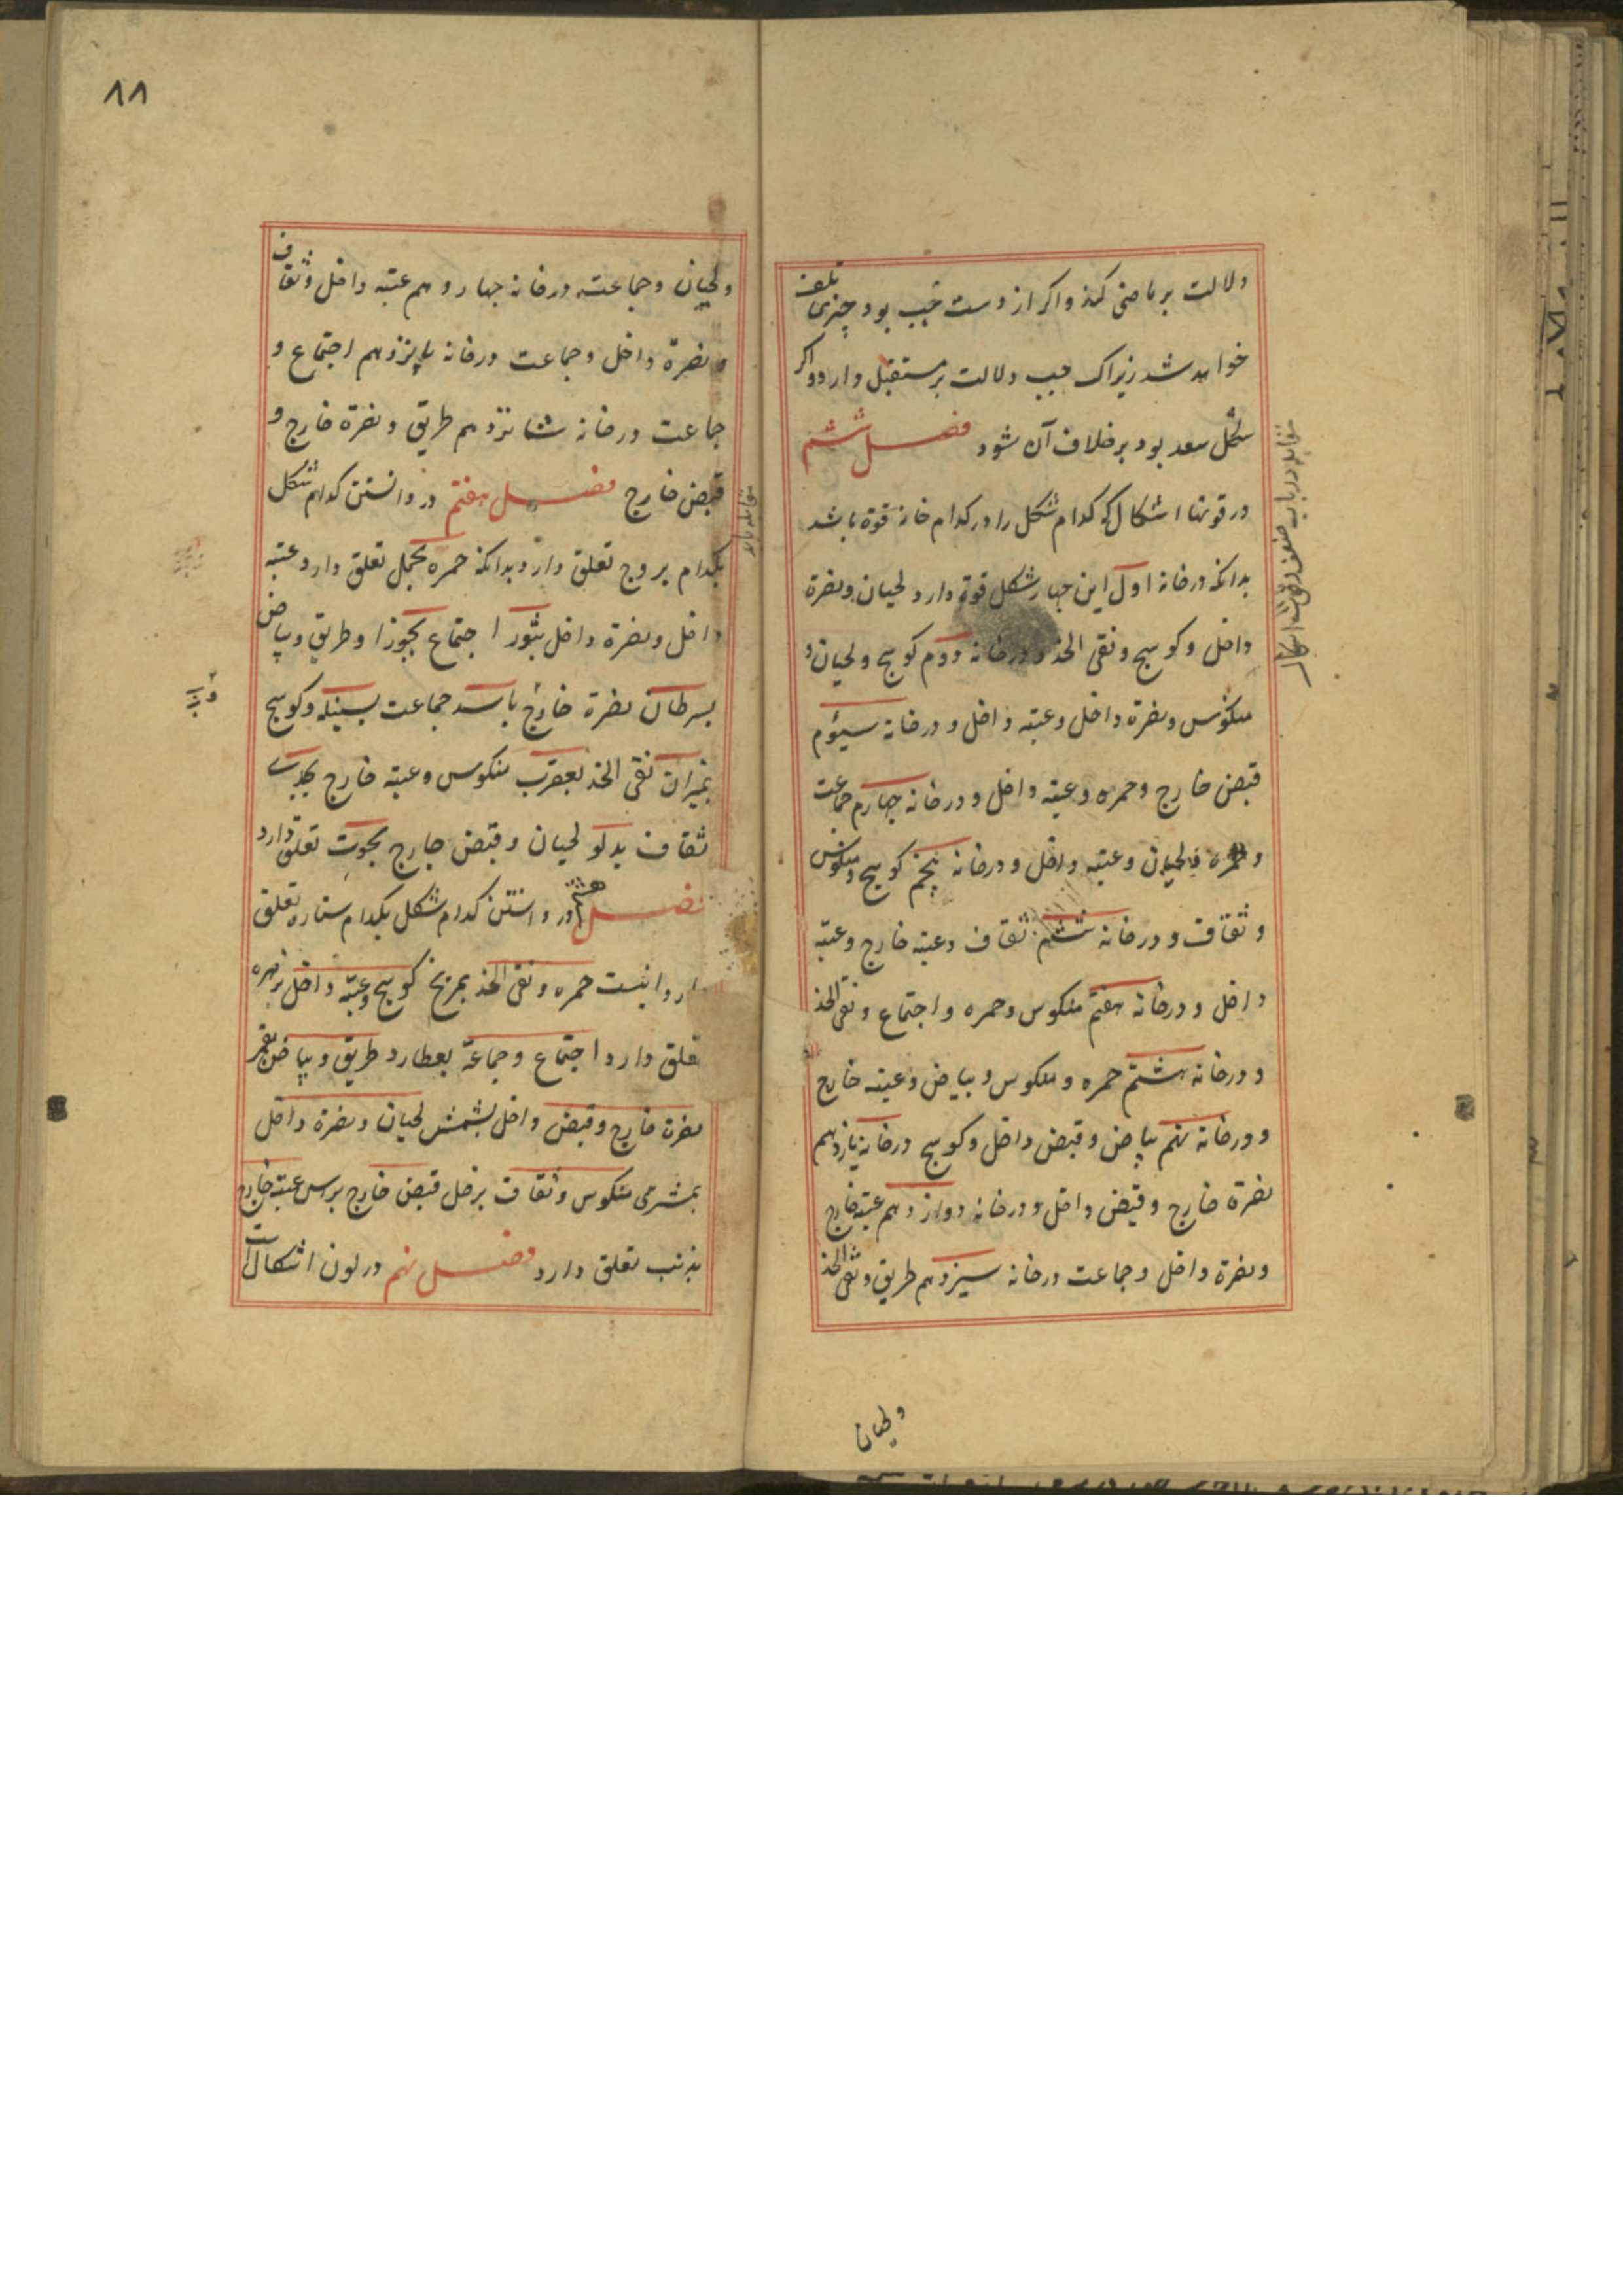 دلالت بر ماضی کند و اکر از دست چپ بود چیزی تلف
خواهد شد زیراک چپ دلالت بر مستقبل دارد و اکر
شکل سعد بود بر خلاف آن شود فصل ششم
در قوتها اشکال که کدام شکل را در کدام خانه قوة باشد
بدانکه در خانه اول این چهار شکل قوة دارد لحیان و نصرة
داخل و کوسج و نقی الخد و در خانه دوم کوسج و لحیان و
منکوس و نصرة داخل و عتبه داخل و در خانه سیوم
قبض خارج و حمره و عتبه داخل و در خانه چهارم جماعت
و حمره و لحیان و عتبه داخل و در خانه پنجم کوسج و منکوس
و ثقاف و در خانه ششم ثقاف و عتبه خارج و عتبه
داخل و در خانه هفتم منکوس و حمره و اجتماع و نقی الخد
و در خانه هشتم حمره و منکوس و بیاض و عتبه خارج
و در خانه نهم بیاض و قبض داخل و کوسج در خانه یازدهم
نصرة خارج و قبض داخل و در خانه دوازدهم عتبه خارج
و نصرة داخل و جماعت در خانه سیزدهم طریق و نقی الخد
ولحیان
٨٨
ولحیان و جماعته در خانه چهاردهم عتبه داخل و ثقاف
و نصرة داخل و جماعت در خانه پانزدهم اجتماع و
جماعت در خانه شانزدهم طریق و نصرة خارج و
قبض خارج فصل هفتم در دانستن کدام شکل
بکدام بروج تعلق دارد بدانکه حمره بحمل تعلق دارد عتبه
داخل و نصرة داخل بثور اجتماع بجوزا و طریق و بیاض
بسرطان نصرة خارج باسد جماعت بسنبله و کوسج
بمیزان نقی الخد بعقرب منکوس و عتبه خارج بجدی
ثقاف بدلو لحیان و قبض خارج بحوت تعلق دارد
فصل هشتم در دانستن کدام شکل بکدام ستاره تعلق
دارد اینست حمره و نقی الخد بمریخ کوسج و عتبه داخل بزهره
تعلق دارد اجتماع و جماعة بعطارد طریق و بیاض بقمر
نصرة خارج و قبض داخل بشمس لحیان و نصرة داخل
بمشتری منکوس و ثقاف بزحل قبض خارج براس عتبه خارج
بذنب تعلق دارد فصل نهم در لون اشکال